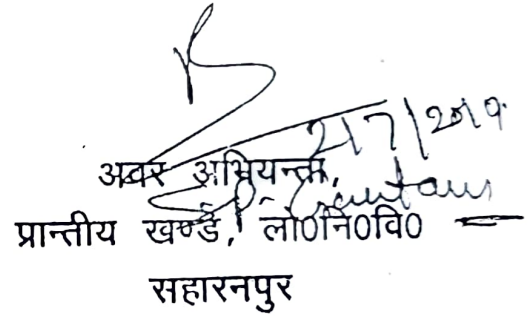 2/7/2019
अवर अभियन्ता,
प्रान्तीय खण्ड, लो0नि0वि0
सहारनपुर